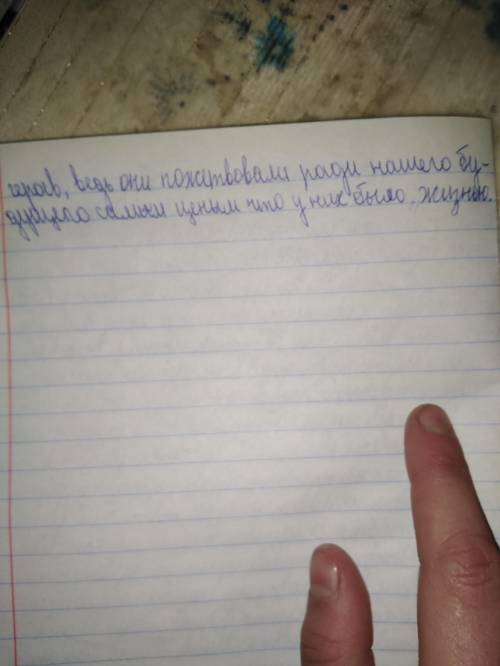 героев, ведь они пожертвовали ради нашего бу-
дущего самым ценым что у них было, жизнью.